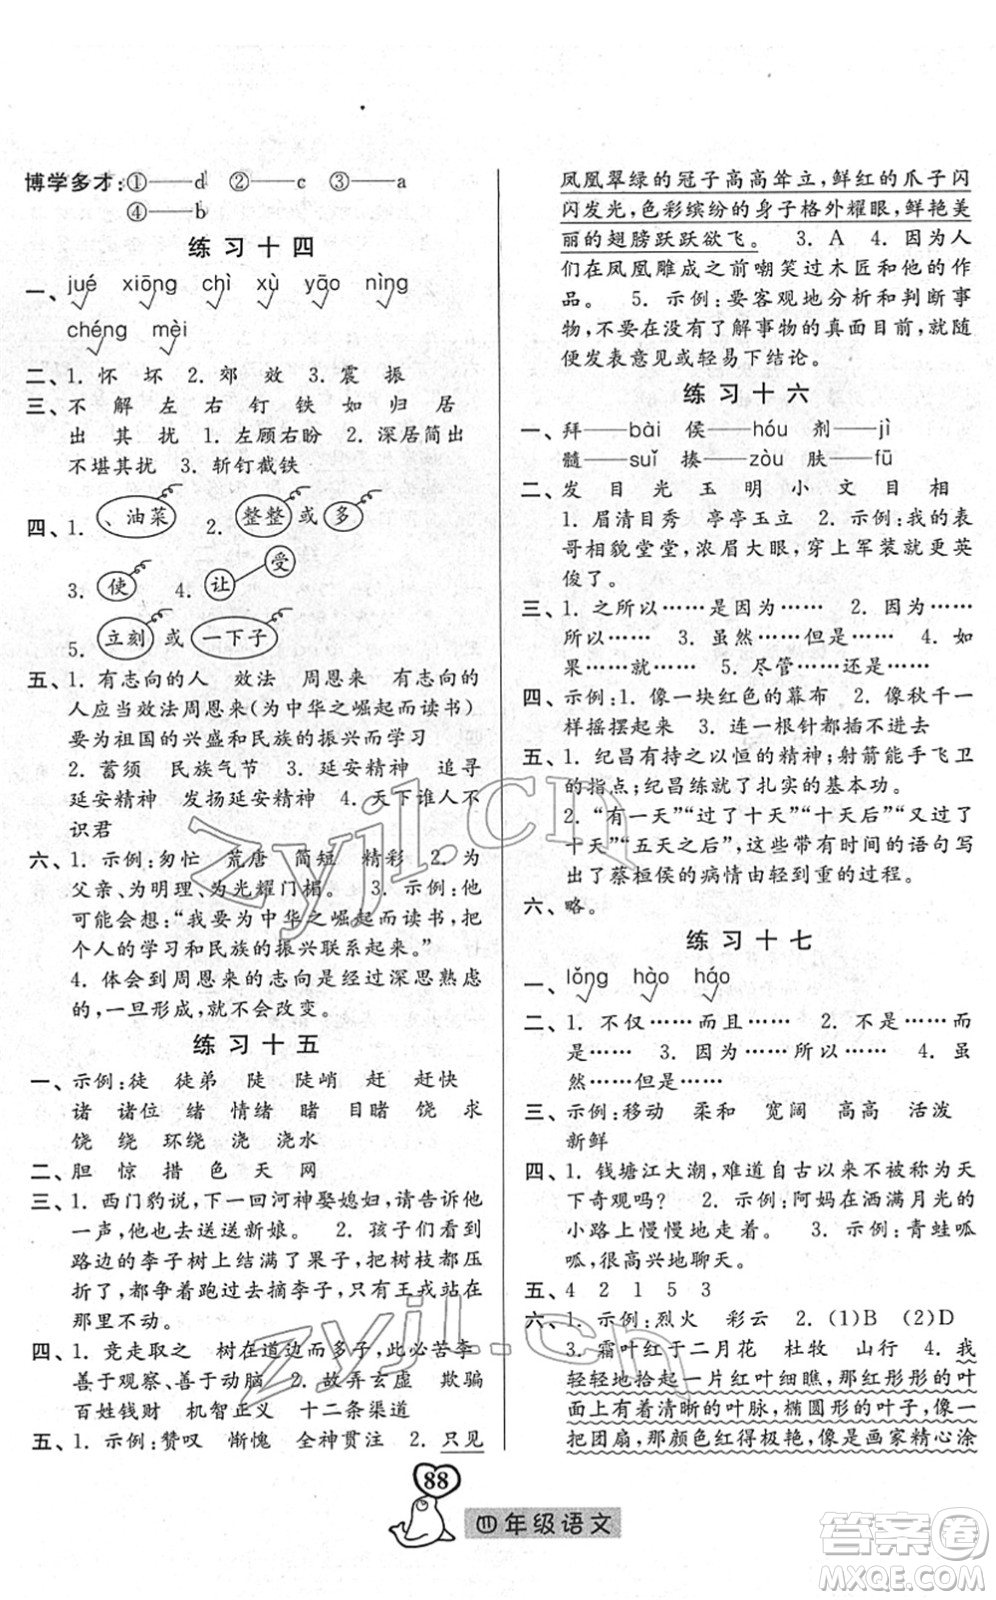 博学多才:①——d ②——c ③——a
④——b
练习十四
一、jué xiōng chì xù yāo nìng
chéng mèi
二、1. 怀 坏 2. 郊 效 3. 震 振
三、不 解 左 右 钉 铁 如 归 居
出 其 扰 1. 左顾右盼 2. 深居简出
不堪其扰 3. 斩钉截铁
四、1. 、油菜 2. 整整 或 多
3. 使 4. 让 受
5. 立刻 或 一下子
五、1. 有志向的人 效法 周恩来 有志向的
人应当效法周恩来(为中华之崛起而读书)
要为祖国的兴盛和民族的振兴而学习
2. 蓄须 民族气节 3. 延安精神 追寻
延安精神 发扬延安精神 4. 天下谁人不
识君
六、1. 示例:匆忙 荒唐 简短 精彩 2. 为
父亲、为明理、为光耀门楣。 3. 示例:他
可能会想:“我要为中华之崛起而读书,把
个人的学习和民族的振兴联系起来。”
4. 体会到周恩来的志向是经过深思熟虑
的,一旦形成,就不会改变。
练习十五
一、示例:徒 徒弟 陡 陡峭 赶 赶快
诸 诸位 绪 情绪 睹 目睹 饶 求
饶 绕 环绕 浇 浇水
二、胆 惊 措 色 天 网
三、1. 西门豹说,下一回河神娶媳妇,请告诉他
一声,他也去送送新娘。 2. 孩子们看到
路边的李子树上结满了果子,把树枝都压
折了,都争先恐后地跑过去摘李子,只有王戎站在
那里不动。
四、1. 竞走取之 树在道边而多子,此必苦李
善于观察、善于动脑 2. 故弄玄虚 欺骗
百姓钱财 机智正义 十二条渠道
五、1. 示例:赞叹 惭愧 全神贯注 2. 只见
凤凰翠绿的冠子高高耸立,鲜红的爪子闪
闪发光,色彩缤纷的身子格外耀眼,鲜艳美
丽的翅膀跃跃欲飞。 3. A 4. 因为人
们在凤凰雕成之前嘲笑过木匠和他的作
品。 5. 示例:要客观地分析和判断事
物,不要在没有了解事物的真面目前,就随
便发表意见或轻易下结论。
练习十六
一、拜——bài 侯——hóu 剂——jì
髓——suǐ 揍——zòu 肤——fū
二、发 目 光 玉 明 小 文 目 相
1. 眉清目秀 亭亭玉立 2. 示例:我的表
哥相貌堂堂,浓眉大眼,穿上军装就更英
俊了。
三、1. 之所以……是因为…… 2. 因为……
所以…… 3. 虽然……但是…… 4. 如
果……就…… 5. 尽管……还是……
四、示例:1. 像一块红色的幕布 2. 像秋千一
样摇摆起来 3. 连一根针都插不进去
五、1. 纪昌有持之以恒的精神;射箭能手飞卫
的指点;纪昌练了扎实的基本功。
2. “有一天”“过了十天”“十天后”“又过了
十天”“五天之后”,这些带有时间的语句写
出了蔡桓侯的病情由轻到重的过程。
六、略。
练习十七
一、lǒng hào háo
二、1. 不仅……而且…… 2. 不是……而
是…… 3. 因为……所以…… 4. 虽
然……但是……
三、示例:移动 柔和 宽阔 高高 活泼
新鲜
四、1. 钱塘江大潮,难道自古以来不被称为天
下奇观吗? 2. 示例:阿妈在洒满月光的
小路上慢慢地走着。 3. 示例:青蛙呱
呱,很高兴地聊天。
五、4 2 1 5 3
六、1. 示例:烈火 彩云 2. (1)B (2)D
3. 霜叶红于二月花 杜牧 山行 4. 我
轻轻拾起一片红叶细瞧,那红彤彤的叶
面上有着清晰的叶脉,椭圆形的叶子,像
一把团扇,那颜色红得极艳,像是画家精心涂
88
四年级语文
zyjl.cn
zyjl.cn
答案圈
MXQE.COM